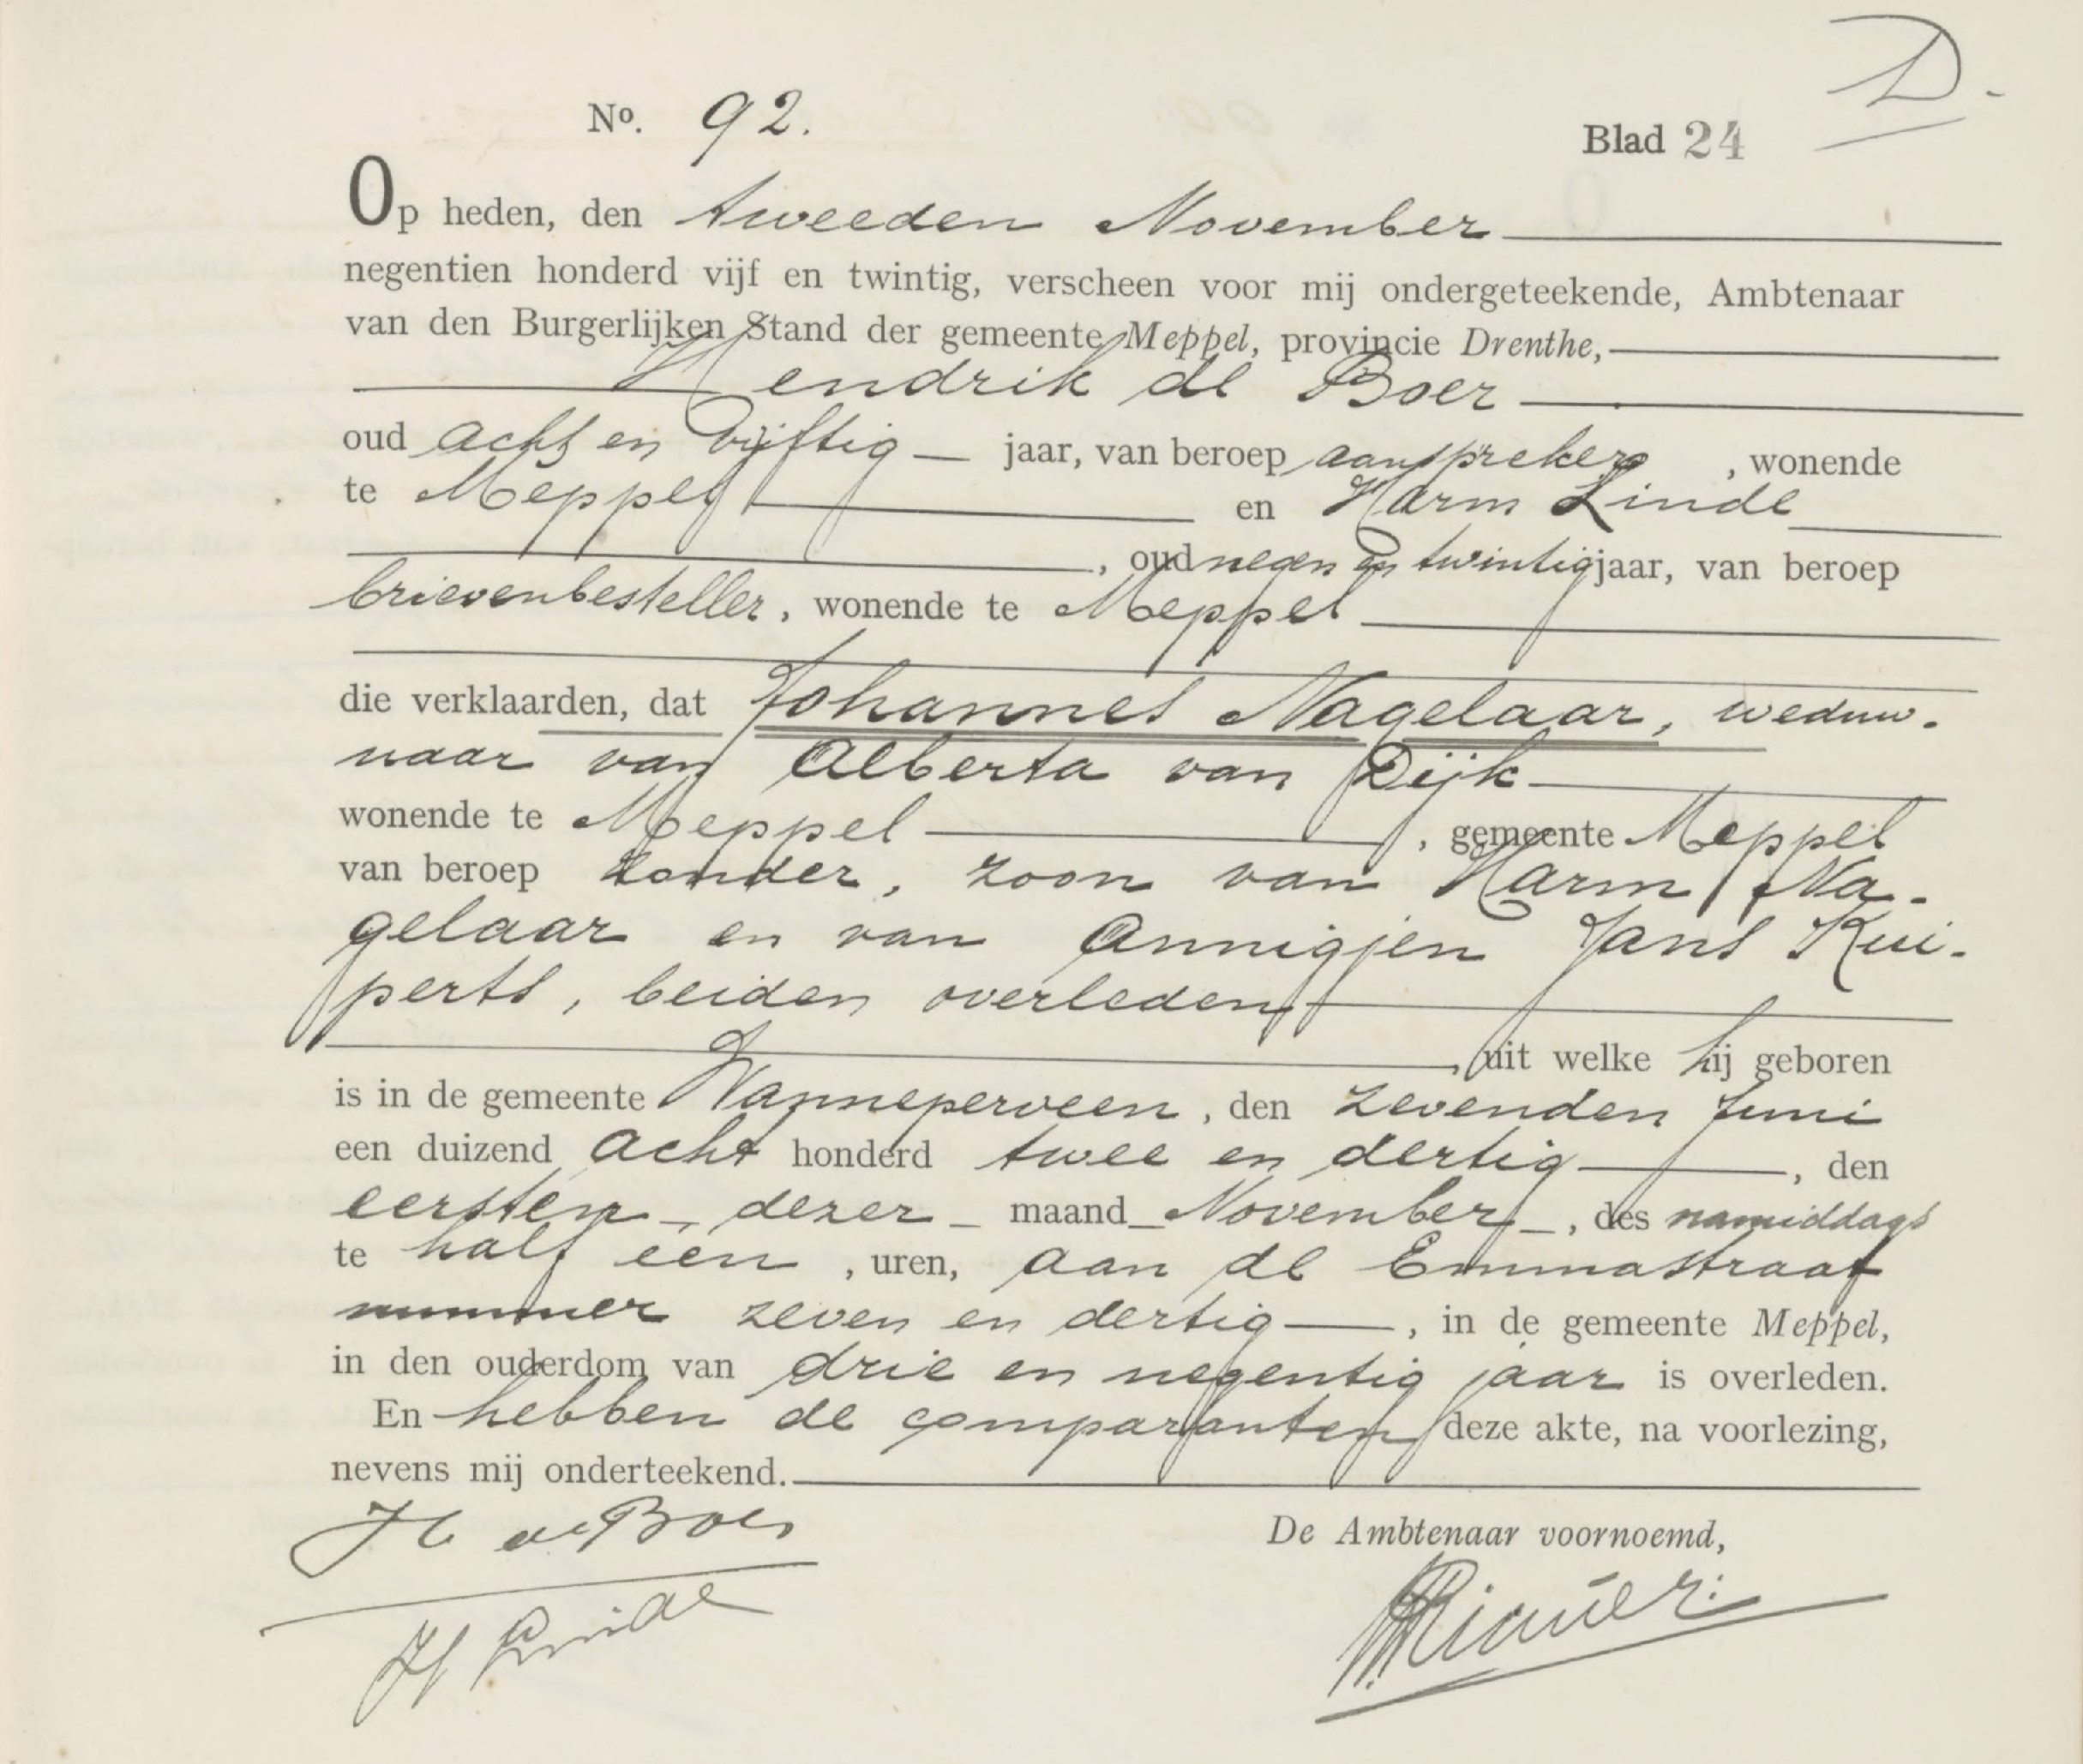 D.
No. 92.
Blad 24
Op heden, den tweeden November
negentien honderd vijf en twintig, verscheen voor mij ondergeteekende, Ambtenaar
van den Burgerlijken Stand der gemeente Meppel, provincie Drenthe,
Hendrik de Boer
oud acht en vijftig jaar, van beroep aanspreker, wonende
te Meppel en Harm Linde
, oud negen en twintig jaar, van beroep
brievenbesteller, wonende te Meppel
die verklaarden, dat Johannes Nagelaar, weduw-
naar van Alberta van Dijk
wonende te Meppel, gemeente Meppel
van beroep zonder, zoon van Harm Na-
gelaar en van Annigjen Jans Kui-
perts, beiden overleden
, uit welke hij geboren
is in de gemeente Wanneperveen, den zevenden Juni
een duizend acht honderd twee en dertig, den
eersten dezer maand November, des namiddags
te half een, uren, aan de Emmastraat
nummer zeven en dertig, in de gemeente Meppel,
in den ouderdom van drie en negentig jaar is overleden.
En hebben de comparanten deze akte, na voorlezing,
nevens mij onderteekend.
H de Boer
De Ambtenaar voornoemd,
H Linde